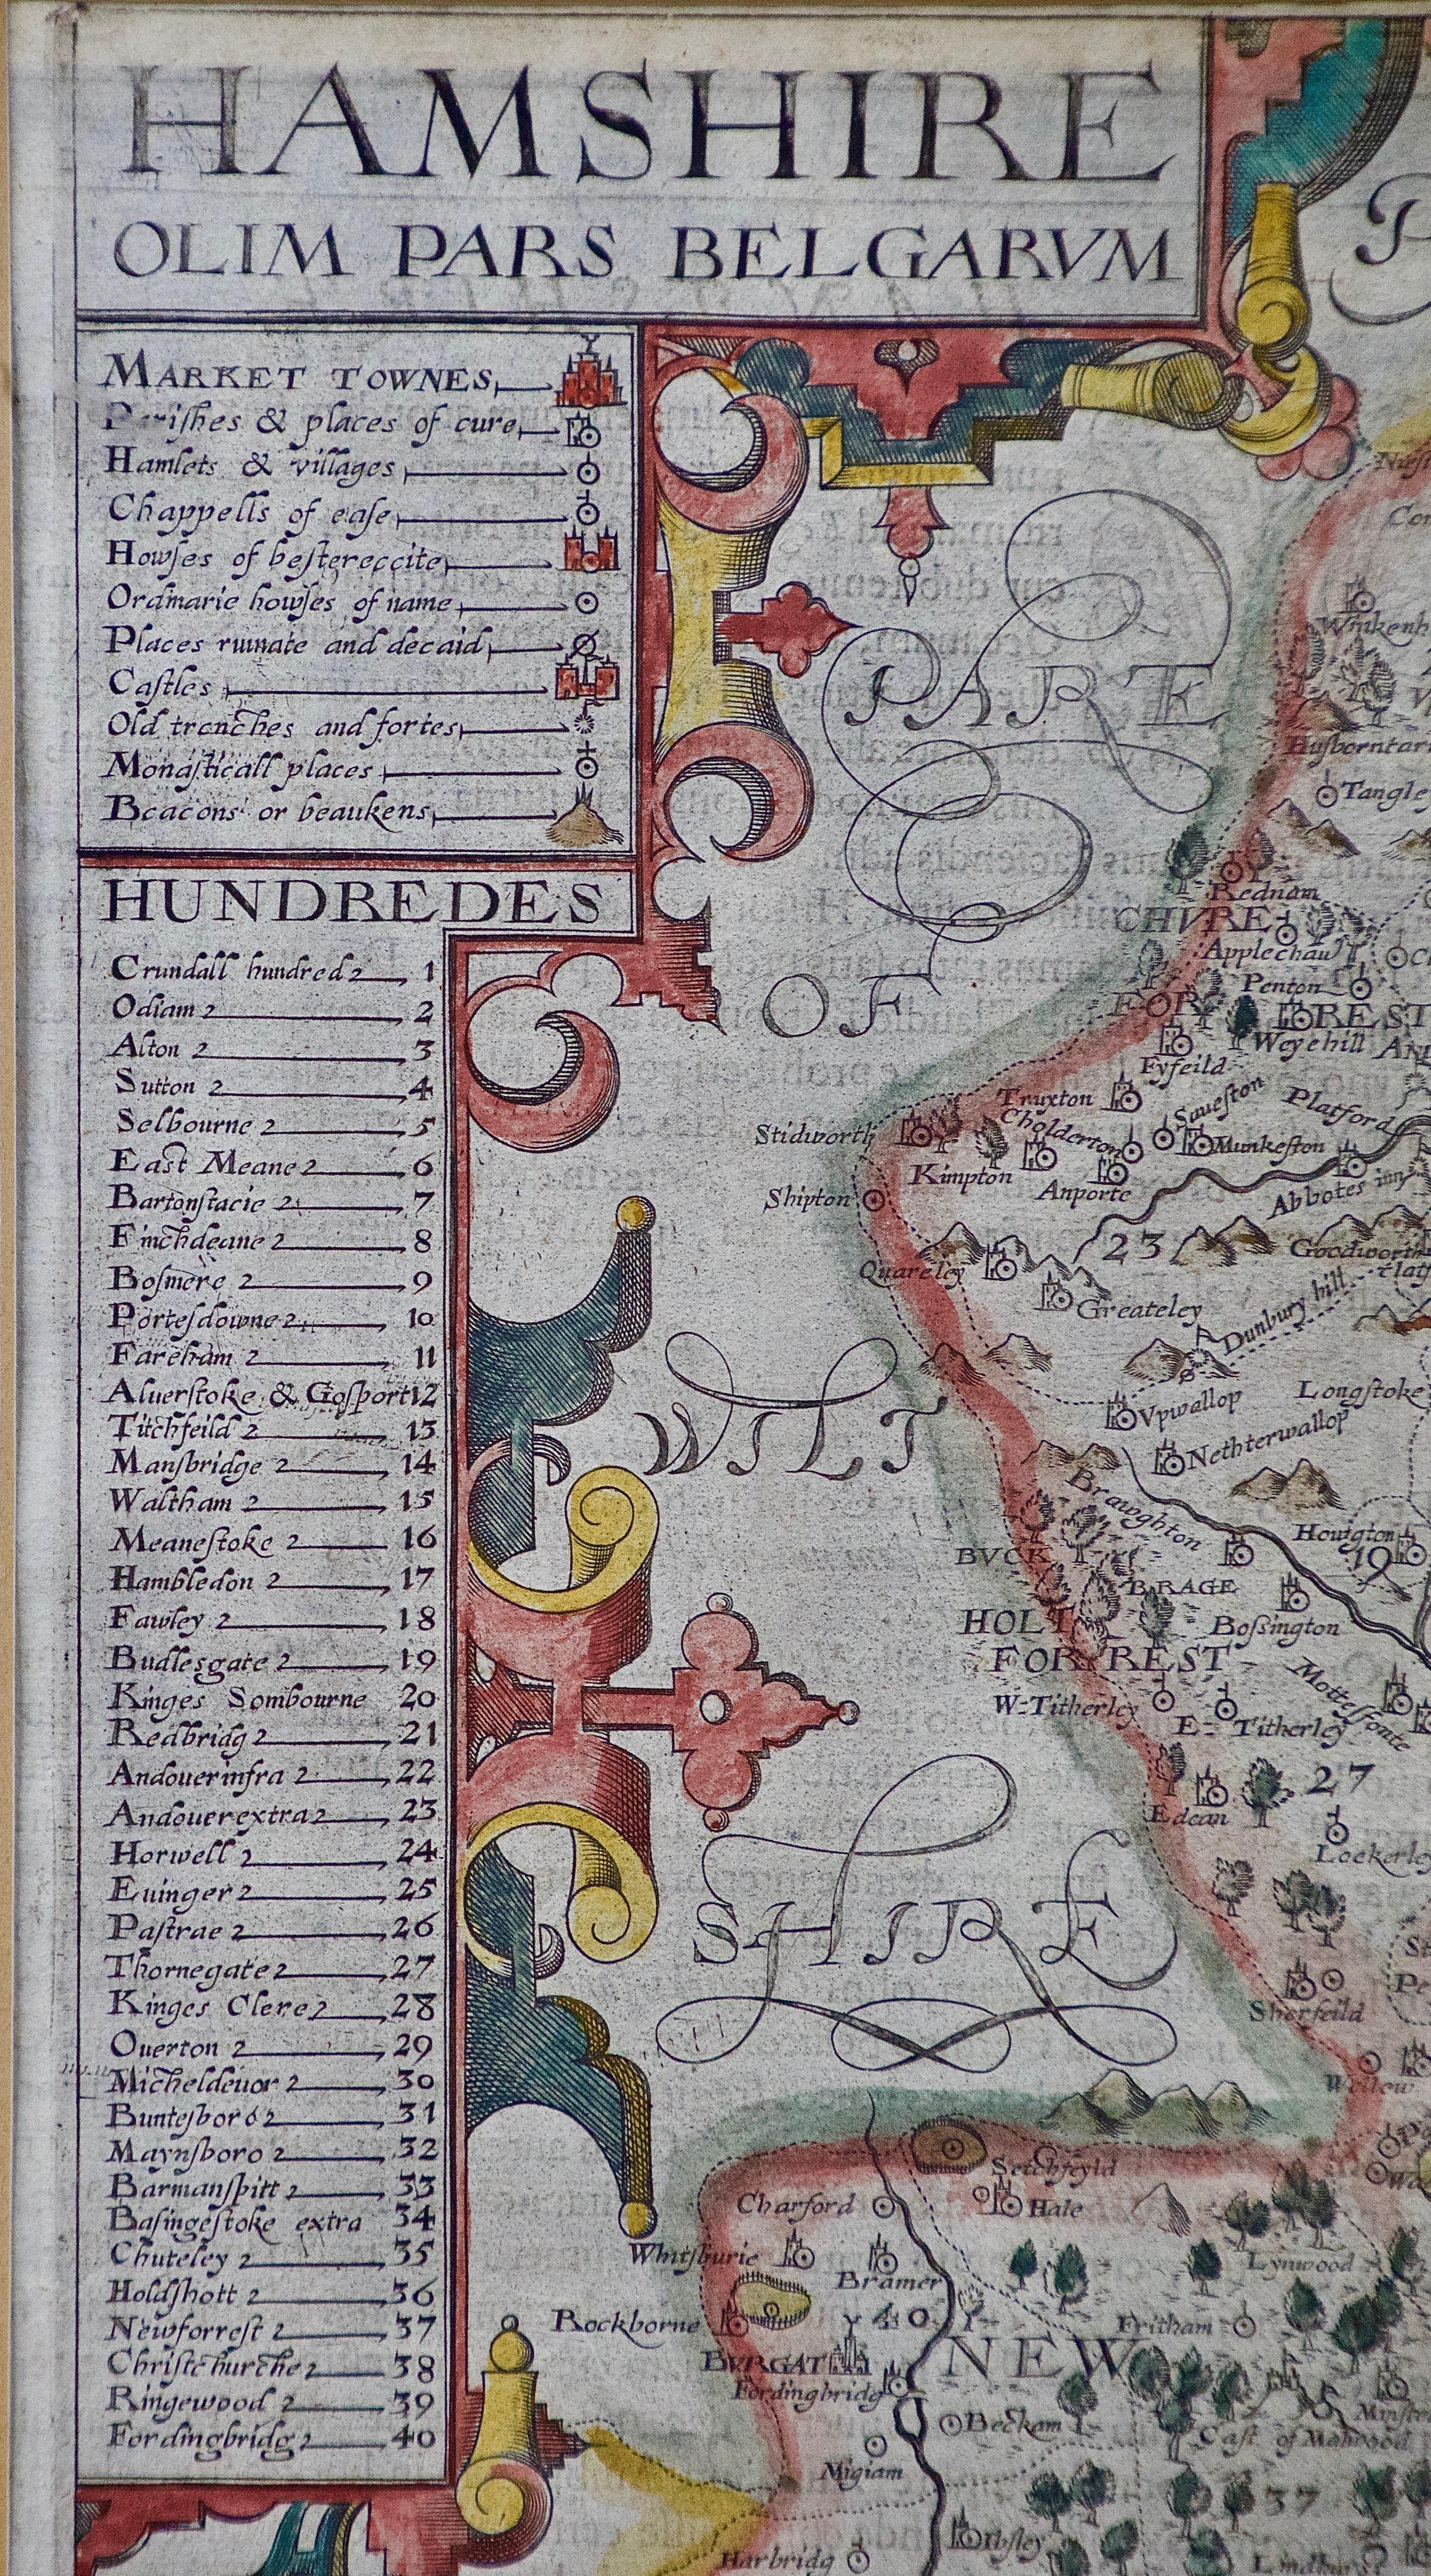 HAMSHIRE
OLIM PARS BELGARVM
MARKET TOWNES
& places of cure
Hamlets & villages
Chappells of ease
Howses of bestereccite
Ordinarie howses of name
Places ruinate and decaid
Castles
Old trenches and fortes
Monasticall places
Beacons or beaukens
HUNDREDES
Crundall hundred 1
Odiam 2
Alton 3
Sutton 4
Selbourne 5
East Meane 6
Bartonstacie 7
Finchdeane 8
Bosmere 9
Portesdowne 10
Fareham 11
Aluerstoke & Gosport 12
Titchfeild 13
Mansbridge 14
Waltham 15
Meanestoke 16
Hambledon 17
Fawley 18
Budlesgate 19
Kinges Sombourne 20
Redbridg 21
Andouerinfra 22
Andouerextra 23
Horwell 24
Euinger 25
Pastrae 26
Thornegate 27
Kinges Clere 28
Ouerton 29
Micheldeuor 30
Buntesboro 31
Maynsboro 32
Barmanspitt 33
Basingestoke extra 34
Chuteley 35
Holdshott 36
Newforrest 37
Christchurche 38
Ringewood 39
Fordingbridg 40
PARE
OF
WILT
SHIRE
Husborntar
Tangley
Rednam
CHVRE
Applechau
Penton
FOR
REST
Weyehill
Fyfeild
Truxton
Cholderton
Saueston
Platford
Stidworth
Munkeston
Kimpton
Anporte
Abbotes inn
Shipton
23
Goodworth
Quareley
Greateley
Dunbury hill
Longstoke
Vpwallop
Nethterwallop
Brawghton
Howgton
19
BVCK
BRAGE
HOLT
Bossington
FORREST
W=Titherley
E= Titherley
Mottesfonte
27
Edean
Lockerley
Sherfeild
Wellow
Setchfeyld
Charford
Hale
Whitsburie
Bramer
Lynwood
Rockborne
40
Fritham
BVRGAT
NEW
Fordingbridg
Beckam
Cast of Malwood
Migiam
37
Ibsley
Harbridg